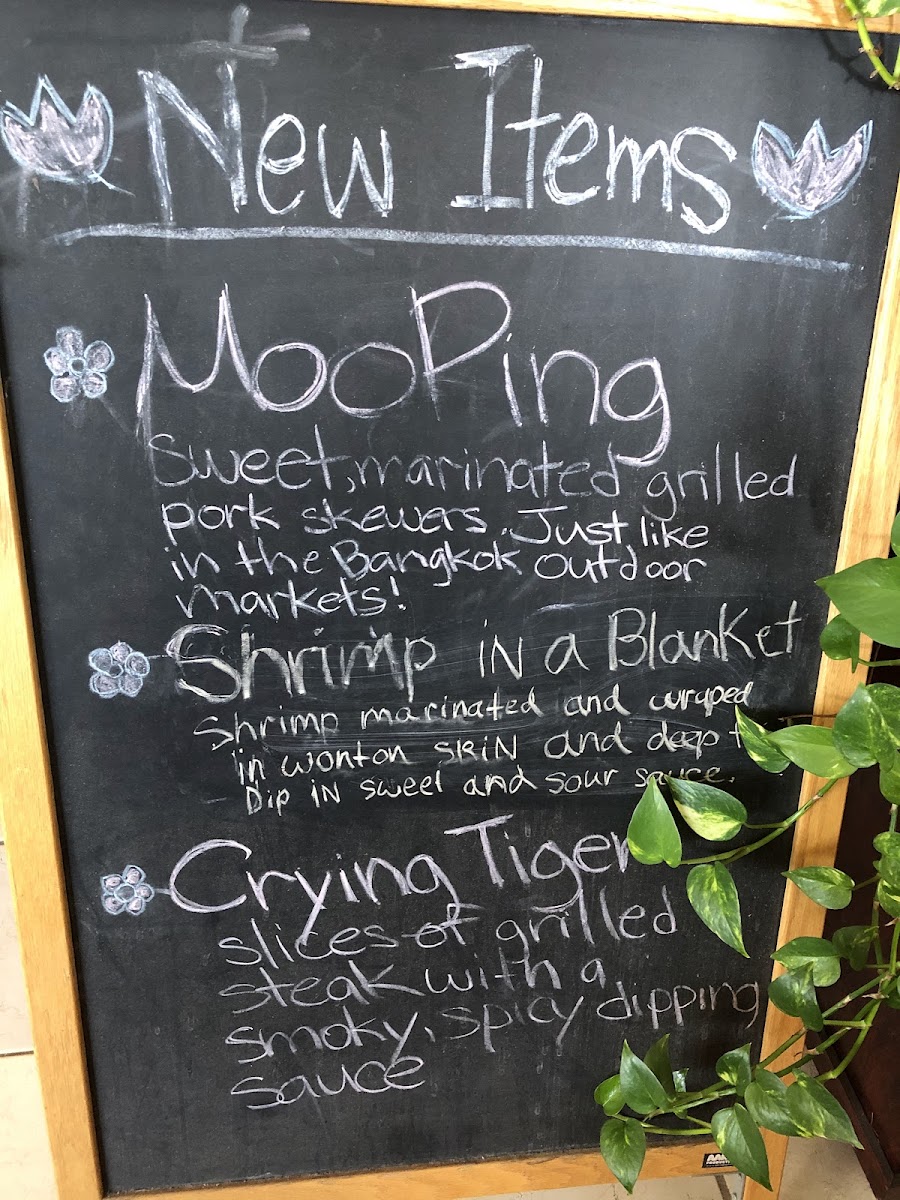 New Items
MooPing
Sweet, marinated grilled
pork skewers. Just like
in the Bangkok outdoor
markets!
Shrimp in a Blanket
Shrimp marinated and wraped
in wonton skin and deep
Dip in sweet and sour sauce.
Crying Tiger
slices of grilled
steak with a
smoky, spicy dipping
sauce